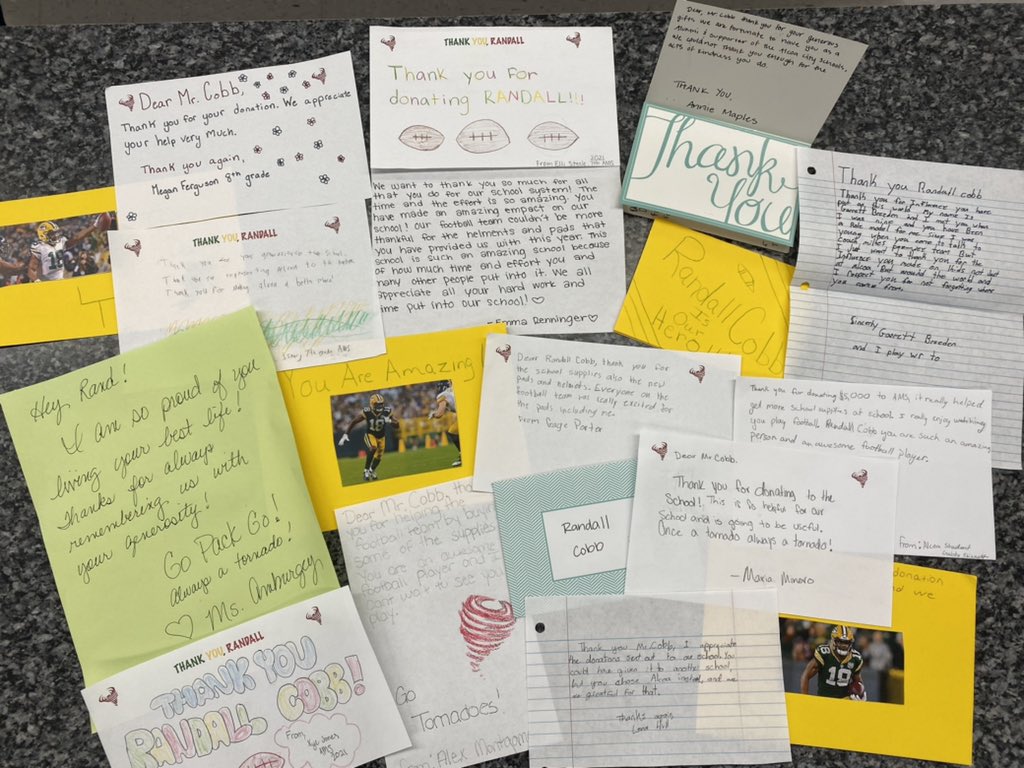 Dear Mr. Cobb,
Thank you for your donation. We appreciate
your help very much.
Thank you again,
Megan Ferguson 8th grade
THANK YOU, RANDALL
Thank you for
donating RANDALL!!!
2021
From Elli Steele 7th AMS
We want to thank you so much for all
that you do for our school system! The
time and the effert is so amazing. You
have made an amazing empact on our
school! our football team couldn't be more
thankful for the helments and pads that
you have provided us with this year. This
school is such an amazing school because
of how much time and effort you and
many other people put into it. We all
appreciate all your hard work and
time put into our school! ♡
-Emma Renninger ♡
Dear, Mr. Cobb thank you for your generous
gifts. We are fortunate to have you as a
Alumni & supporter of the Alcoa city schools,
We could not thank you enough for the
acts of kindness you do.
THANK YOU,
Annie Maples
Thank
You
Thank you Randall cobb
Thank you for Influnce you have
put on this world my name is
Garrett Breeden and I play
a role model for me I was
young when you came to talk to
Influence you made on kids not but
in Alcoa But around the world and
I respect you for not forgetting where
you came from.
Sincerly Garrett Breeden
and I play wr to
THANK YOU, RANDALL
Thank you for
Thank you for being
7th grade AMS
Randall Cobb
Is
Our
Hero
You Are Amazing
Hey Rand!
I am so proud of you
living your best life!
Thanks for always
remembering us with
your generosity!
Go Pack Go!
always a tornado!
♡ Ms. Amburgey
Dear Randall Cobb, thank you for
the school supplies also the new
pads and helmets. Everyone on the
football team was really excited for
the pads including me.
From Gage Porter
Thank you for donating $5,000 to AMS, it really helped
get more school supplies at school. I really enjoy watching
you play football. Randall Cobb you are such an amazing
person and an awesome football player.
From:
Dear Mr Cobb.
Thank you for donating to the
School! This is so helpful for our
School and is going to be useful.
Once a tornado always a tornado!
- Maria
Dear Mr. Cobb, tha
you for helping the
football team by buyin
some of the supplies
You are an awesome
football player and I
can't wait to see you
play.
Go
Tornadoes!
From: Alex
Randall
Cobb
donation
we
Thank you Mr. Cobb, I appreciate
the donations sent out to our school. You
could have given it to another school,
but you chose Alcoa instead, and we
so grateful for that.
thanks again,
Lana Hill
THANK YOU, RANDALL
THANK YOU
RANDALL COBB!
From,
Kyle Jones
AMS
2021